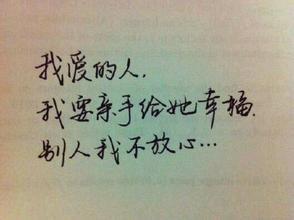 我爱的人.
我要亲手给她幸福.
别人我不放心...